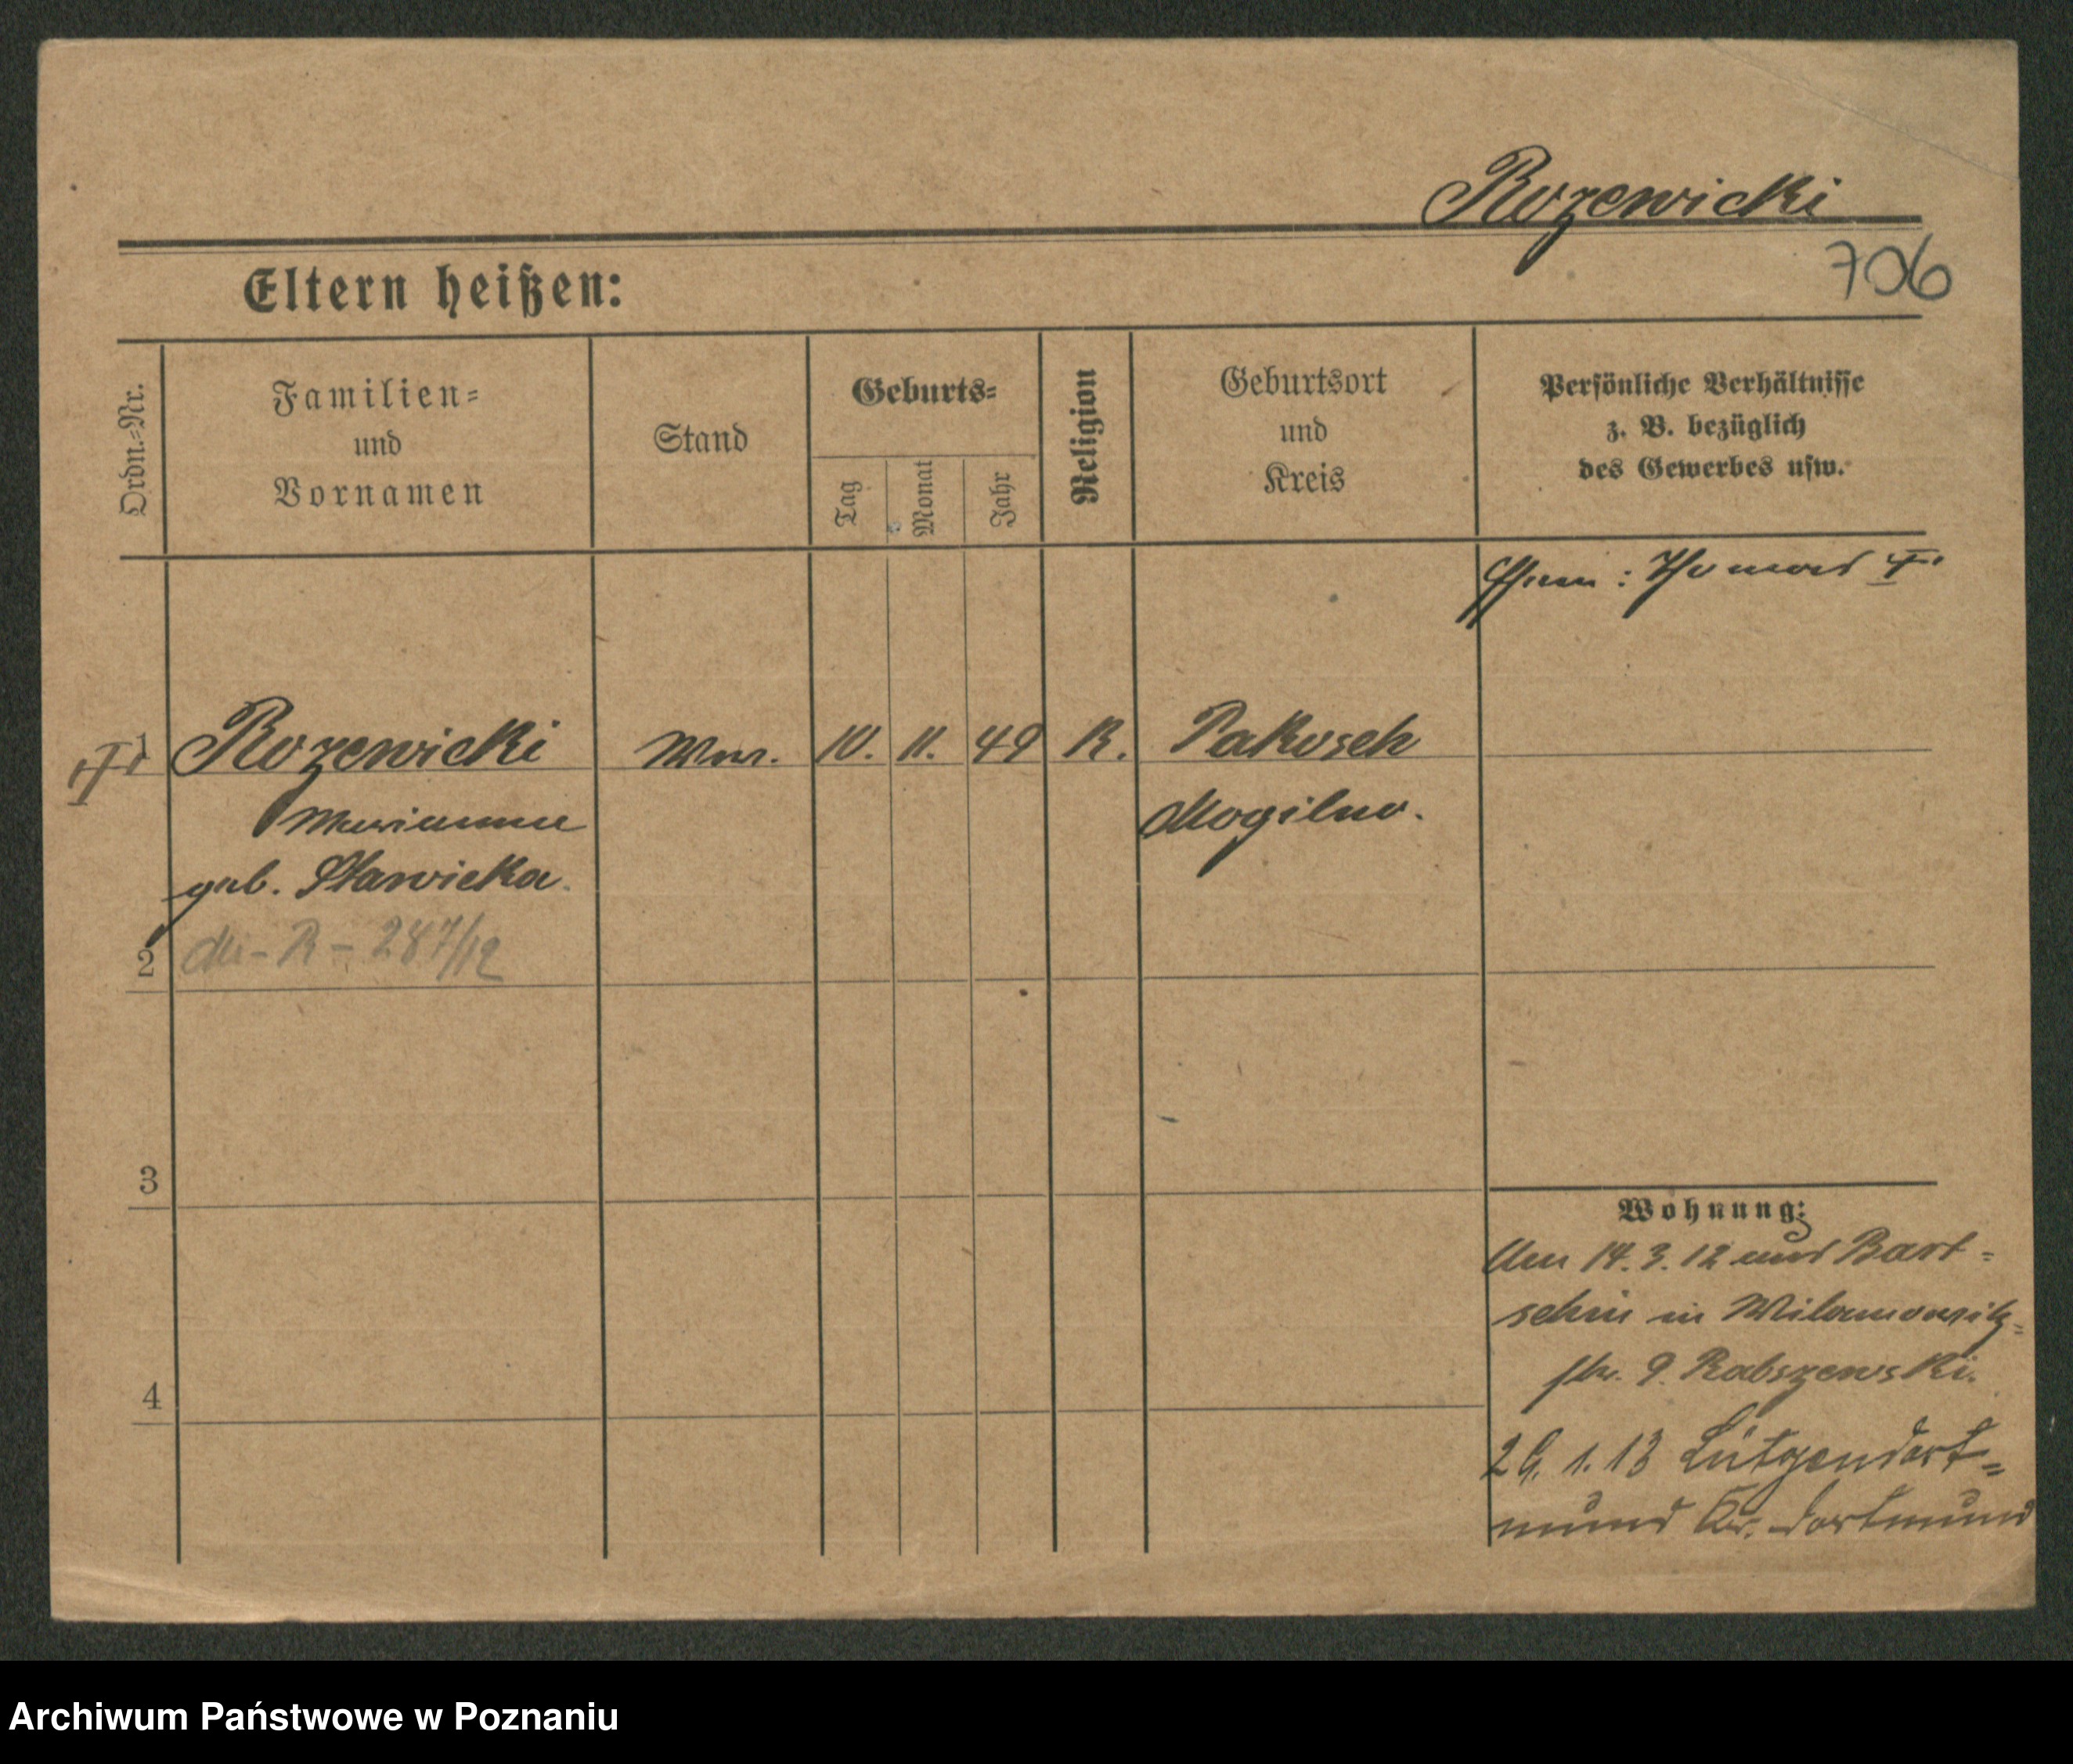 Rozewicki
706
Eltern heißen:
Ordn.=Nr.
Familien=
und
Vornamen
Stand
Geburts=
Tag
Monat
Jahr
Religion
Geburtsort
und
Kreis
Persönliche Verhältnisse
z. B. bezüglich
des Gewerbes usw.
Ehem: Thomas †.
1
Rozewicki
Ww. 10. 11. 49 K. Pakosch
Marianna
Mogilno.
geb. Stawicka.
2
R - 287/12
3
4
Wohnung:
14. 3. 12 aus Bart=
schin in Wilamowitz=
str. 9. Rabszewski.
29. 1. 13 Lütgendort=
mund Kr. Dortmund
Archiwum Państwowe w Poznaniu